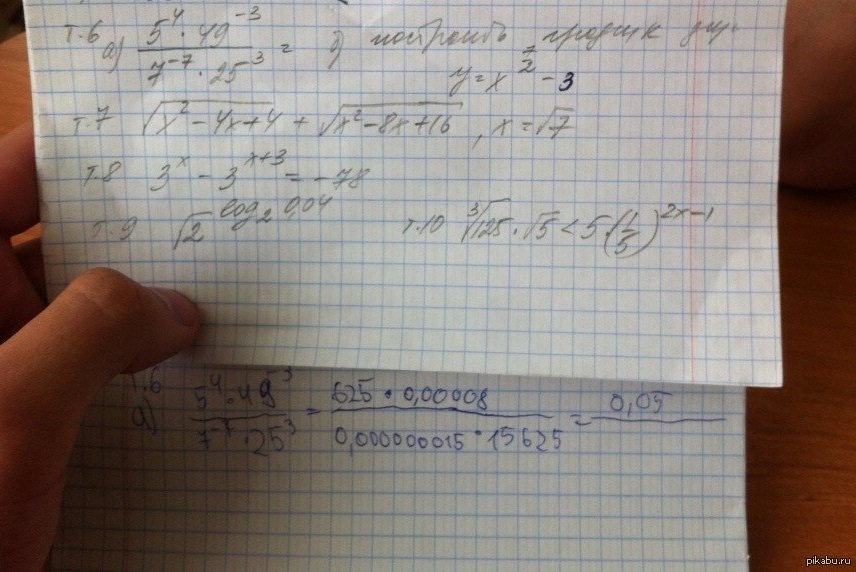 т.6 а) 5⁴·49⁻³ / 7⁻⁷·25³ = б) построить график
y = x^(7/2) - 3
т.7 √(x² - 4x + 4) + √(x² - 8x + 16) , x = √7
т.8 3^x - 3^(x+3) = -78
т.9 √2^(log₂ 0,04) т.10 ³√125 · √5 < 5·(1/5)^(2x-1)
т.6
а) 5⁴·49⁻³ / 7⁻⁷·25³ = 625·0,00008 / 0,000000015·15625 = 0,05
pikabu.ru